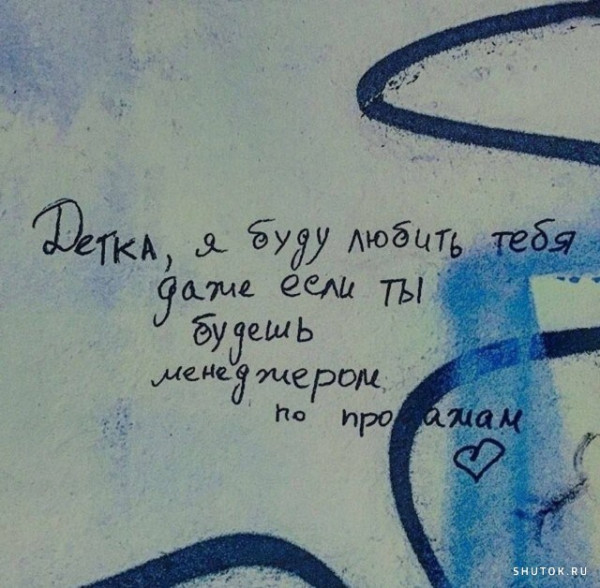 Детка, я буду любить тебя
даже если ты
будешь
менеджером
по продажам
SHUTOK.RU